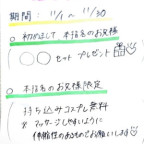 期間：11/1 〜 11/30
○ 初めまして 本指名のお客様
◯◯セットプレゼント
○ 本指名のお客様限定
持ち込みコスプレ無料
※マッサージしやすいように
伸縮性のあるものでお願いします